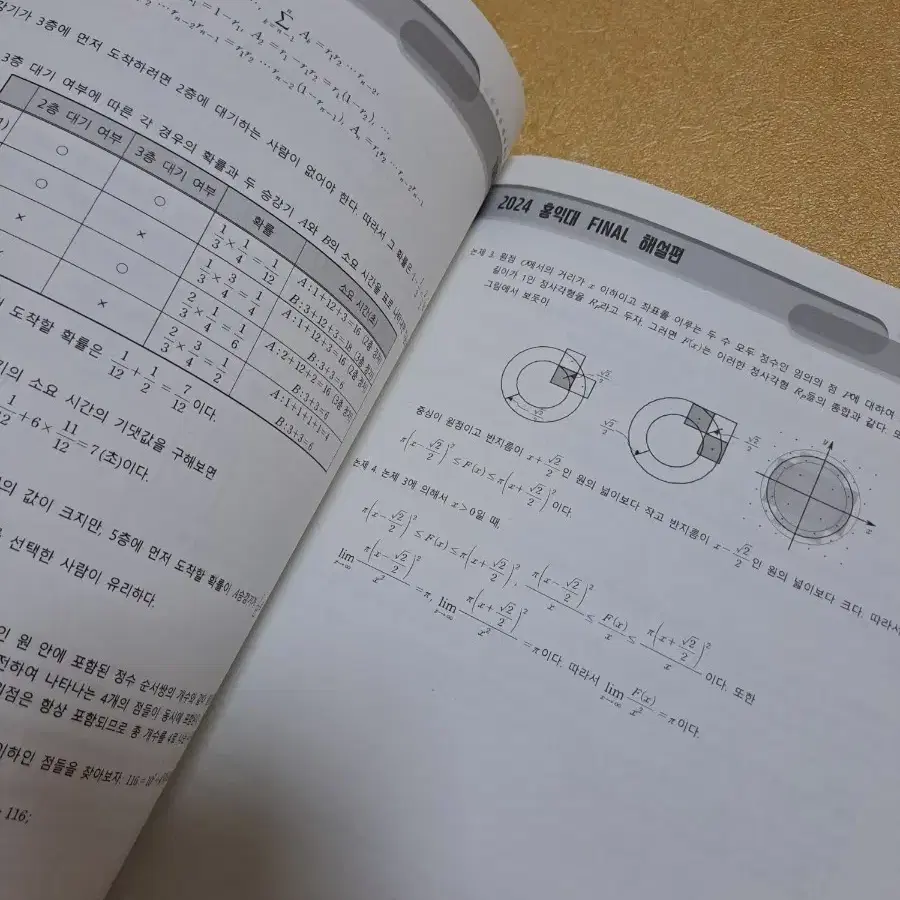 $\sum_{k=1}^{n-1} A_k = r_1 r_2 \cdots r_{n-2}$,
$= 1-r_1, A_2 = r_1 - r_1 r_2 = r_1(1-r_2), \cdots,$
$r_{n-2}(1-r_{n-1}), A_n = r_1 r_2 \cdots r_{n-2} r_{n-1}$
3층에 먼저 도착하려면 2층에 대기하는 사람이 없어야 한다. 따라서 그 확률은
3층 대기 여부에 따른 각 경우의 확률과 두 승강기 A와 B의 소요 시간을 표로 나타내면
2층 대기 여부 3층 대기 여부 확률 소요 시간(초)
○ ○ $\frac{1}{3}\times\frac{1}{4}=\frac{1}{12}$ A:1+12+3=16
B:3+12+3=18
○ × $\frac{1}{3}\times\frac{3}{4}=\frac{1}{4}$ A:1+12+3=16
B:3+3=6
× ○ $\frac{2}{3}\times\frac{1}{4}=\frac{1}{6}$ A:2+12+2=16
B:3+3=6
× × $\frac{2}{3}\times\frac{3}{4}=\frac{1}{2}$ A:1+1+1+1=4
B:3+3=6
도착할 확률은 $\frac{1}{12}+\frac{1}{2}=\frac{7}{12}$이다.
소요 시간의 기댓값을 구해보면
$+6\times\frac{11}{12}=7$(초)이다.
값이 크지만, 5층에 먼저 도착할 확률이
선택한 사람이 유리하다.
원 안에 포함된 정수 순서쌍의 개수와
나타나는 4개의 점들이 동시에
항상 포함되므로 총 개수를
이하인 점들을 찾아보자.
116;
2024 홍익대 FINAL 해설편
논제 3. 원점 O에서의 거리가 x 이하이고 좌표를 이루는 두 수 모두 정수인 임의의 점 P에 대하여
길이가 1인 정사각형을 $R_P$라고 두자. 그러면 F(x)는 이러한 정사각형 $R_P$들의 총합과 같다.
그림에서 보듯이
$\frac{\sqrt{2}}{2}$
$\frac{\sqrt{2}}{2}$
$\frac{\sqrt{2}}{2}$
$\frac{\sqrt{2}}{2}$
y
x
중심이 원점이고 반지름이 $x+\frac{\sqrt{2}}{2}$인 원의 넓이보다 작고 반지름이 $x-\frac{\sqrt{2}}{2}$인 원의 넓이보다 크다. 따라서
$\pi\left(x-\frac{\sqrt{2}}{2}\right)^2 \le F(x) \le \pi\left(x+\frac{\sqrt{2}}{2}\right)^2$이다.
논제 4. 논제 3에 의해서 x>0일 때,
$\pi\left(x-\frac{\sqrt{2}}{2}\right)^2 \le F(x) \le \pi\left(x+\frac{\sqrt{2}}{2}\right)^2, \frac{\pi\left(x-\frac{\sqrt{2}}{2}\right)^2}{x} \le \frac{F(x)}{x} \le \frac{\pi\left(x+\frac{\sqrt{2}}{2}\right)^2}{x}$이다. 또한
$\lim_{x\to\infty}\frac{\pi\left(x-\frac{\sqrt{2}}{2}\right)^2}{x^2}=\pi, \lim_{x\to\infty}\frac{\pi\left(x+\frac{\sqrt{2}}{2}\right)^2}{x^2}=\pi$이다. 따라서 $\lim_{x\to\infty}\frac{F(x)}{x^2}=\pi$이다.